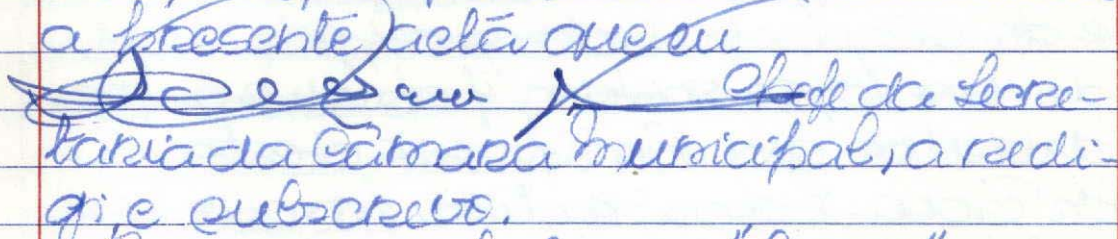 a presente acta que eu
Chefe da Secre-
taria da Câmara Municipal, a redi-
gi e subscrevo.